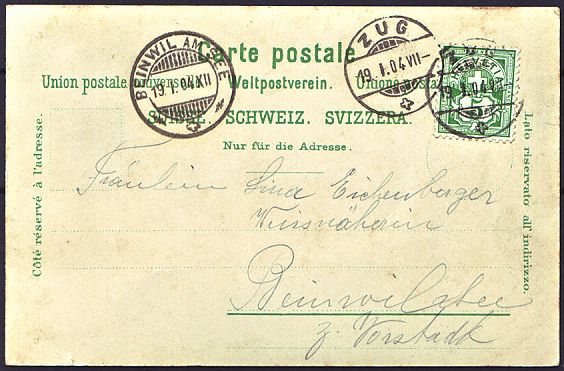 Carte postale
Union postale universelle. Weltpostverein. Unione postale
SUISSE. SCHWEIZ. SVIZZERA.
Nur für die Adresse.
Côté réservé à l'adresse.
Lato riservato all'indirizzo.
BEINWIL AM SEE
19.I.04.XII
ZUG
19.I.04.VII-
ZUG
19.I.04
HELVETIA
Fräulein Lina Eichenberger
Weissnäherin
Beinwil a/See
z. Vorstadt